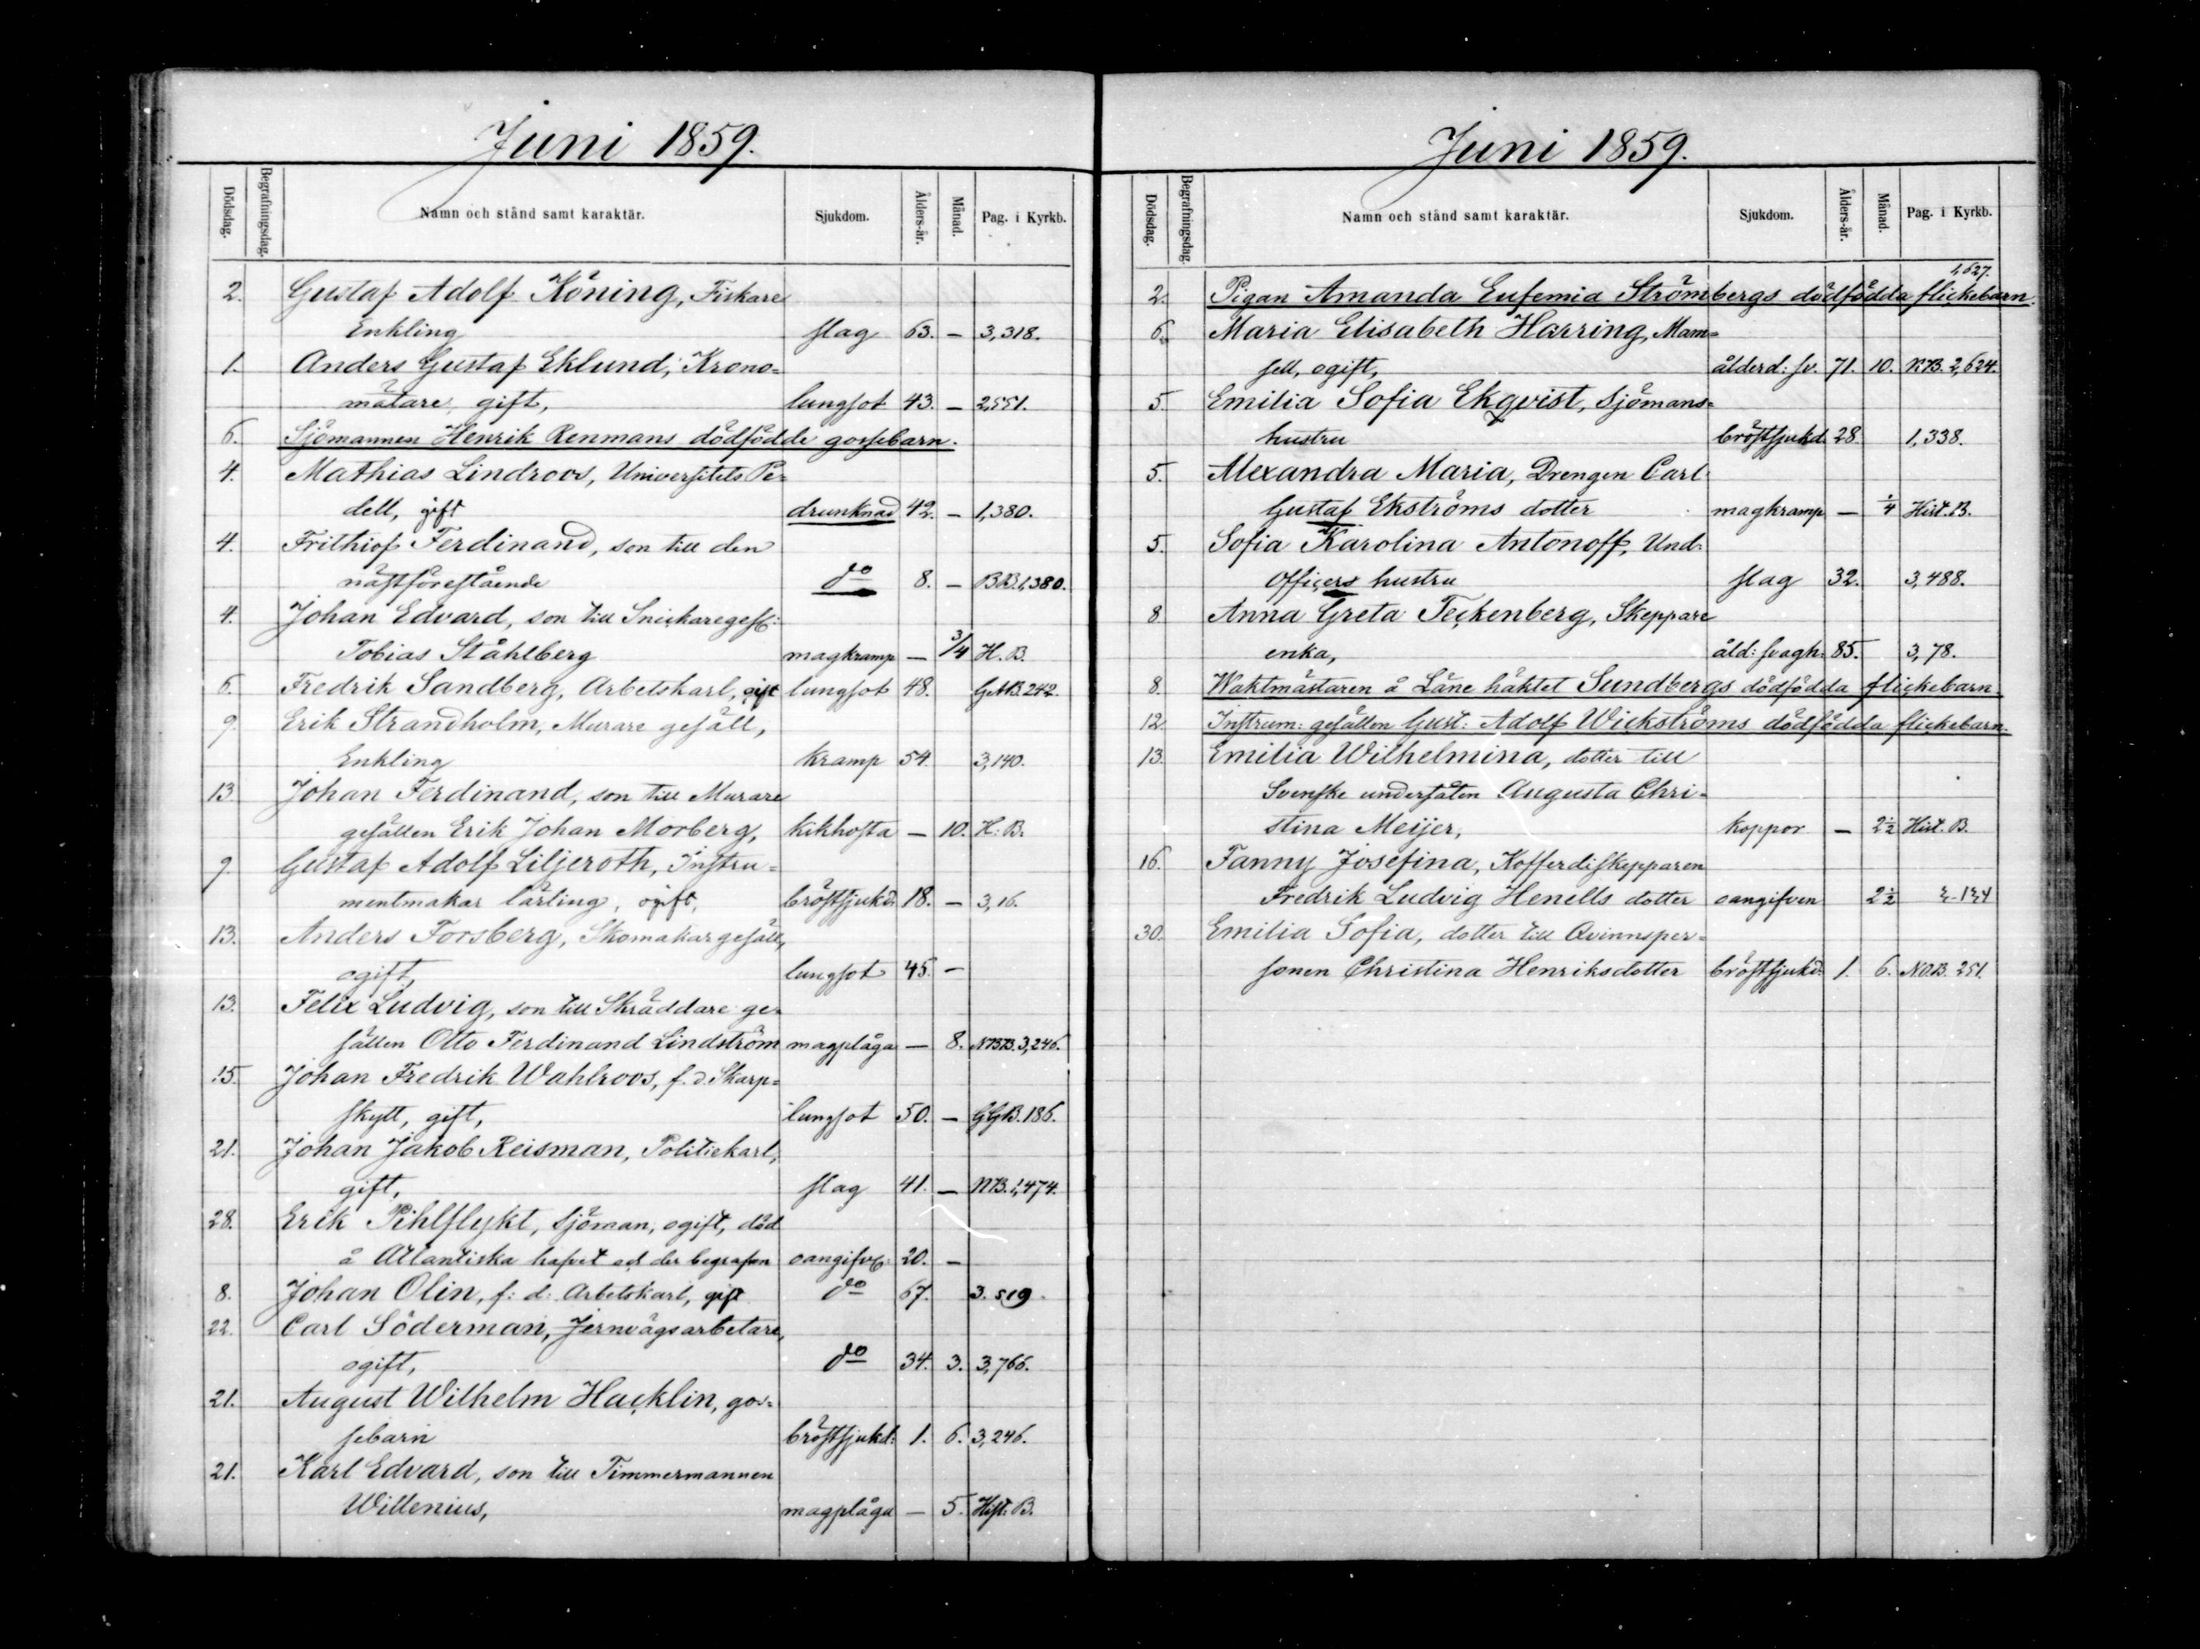 Juni 1859.
Dödsdag. Begrafningsdag. Namn och stånd samt karaktär. Sjukdom. Ålders-år. Månad. Pag. i Kyrkb.
2. Gustaf Adolf Köning, Fiskare
Enkling slag 63. — 3,318.
1. Anders Gustaf Eklund, Krono=
mätare, gift, lungsot 43. — 2,551.
6. Sjömannen Henrik Renmans dödfödde gossebarn.
4. Mathias Lindroos, Universitets Pe=
dell, gift drunknad 42. — 1,380.
4. Frithiof Ferdinand, son till den
nästförestående do 8. — BB.1,380.
4. Johan Edvard, son till Snickaregesc:
Tobias Ståhlberg magkramp — 3/4 H. B.
6. Fredrik Sandberg, Arbetskarl, gift lungsot 48. GAB. 242.
9. Erik Strandholm, Murare gesäll,
Enkling kramp 54. 3,140.
13. Johan Ferdinand, son till Murare
gesällen Erik Johan Morberg, kikhosta — 10. H. B.
9. Gustaf Adolf Liljeroth, Instru=
mentmakar lärling, ogift, bröstsjukd: 18. — 3,16.
13. Anders Forsberg, Skomakar gesäll,
ogift, lungsot 45. —
13. Felix Ludvig, son till Skräddare ge=
sällen Otto Ferdinand Lindström magplåga — 8. NBB. 3,246.
15. Johan Fredrik Wahlroos, f. d. Skarp=
skytt, gift, lungsot 50. — GGB. 186.
21. Johan Jakob Reisman, Politiekarl,
gift, slag 41. — NB. 1,474.
28. Erik Pihlflykt, Sjöman, ogift, död
å Atlantiska hafvet och der begrafven oangifv: 20. —
8. Johan Olin, f: d: Arbetskarl, gift do 67. 3. 519.
22. Carl Söderman, Jernvägsarbetare,
ogift, do 34. 3. 3,766.
21. August Wilhelm Hacklin, gos=
sebarn bröstsjukd: 1. 6. 3,246.
21. Karl Edvard, son till Timmermannen
Willenius, magplåga — 5. Hist. B.
Juni 1859.
Dödsdag. Begrafningsdag. Namn och stånd samt karaktär. Sjukdom. Ålders-år. Månad. Pag. i Kyrkb.
1,627.
2. Pigan Amanda Eufemia Strömbergs dödfödda flickebarn.
6. Maria Elisabeth Harring, Mam=
sell, ogift, ålderd: sv. 71. 10. NB. 2,624.
5. Emilia Sofia Ekqvist, Sjömans=
hustru bröstsjukd. 28. 1,338.
5. Alexandra Maria, Drengen Carl
Gustaf Ekströms dotter magkramp — 1/4 Hist. B.
5. Sofia Karolina Antonoff, Und:
Officers hustru slag 32. 3,488.
8 Anna Greta Teckenberg, Skeppare
enka, åld: svagh: 85. 3,78.
8. Waktmästaren å Läne häktet Sundbergs dödfödda flickebarn.
12. Instrum: gesällen Gust: Adolf Wickströms dödfödda flickebarn.
13. Emilia Wilhelmina, dotter till
Svenske undersåten Augusta Chri=
stina Meijer, koppor — 2 1/2 Hist. B.
16. Fanny Josefina, Kofferdiskepparen
Fredrik Ludvig Henells dotter oangifven 2 1/2
30. Emilia Sofia, dotter till Qvinnsper=
sonen Christina Henriksdotter bröstsjukd: 1. 6. NOB. 251.